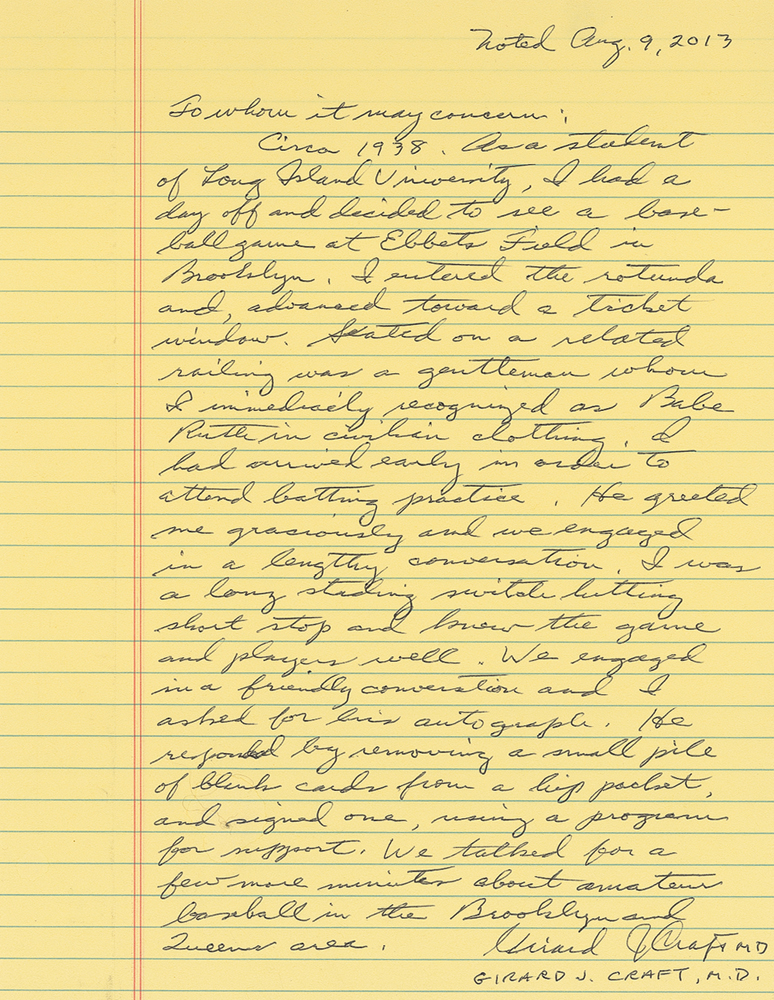 Noted Aug. 9, 2013
To whom it may concern:
Circa 1938. As a student
of Long Island University, I had a
day off and decided to see a base-
ball game at Ebbets Field in
Brooklyn. I entered the rotunda
and, advanced toward a ticket
window. Seated on a related
railing was a gentleman whom
I immediaely recognized as Babe
Ruth in civilian clothing. I
had arrived early in order to
attend batting practice. He greeted
me graciously and we engaged
in a lengthy conversation. I was
a long stading switch hitting
short stop and knew the game
and players well. We engaged
in a friendly converstion and I
asked for his autograph. He
responded by removing a small pile
of blank cards from a hip pocket,
and signed one, using a program
for support. We talked for a
few more minutes about amateur
baseball in the Brooklyn and
Queens area.
Girard J Craft MD
GIRARD J. CRAFT, M.D.